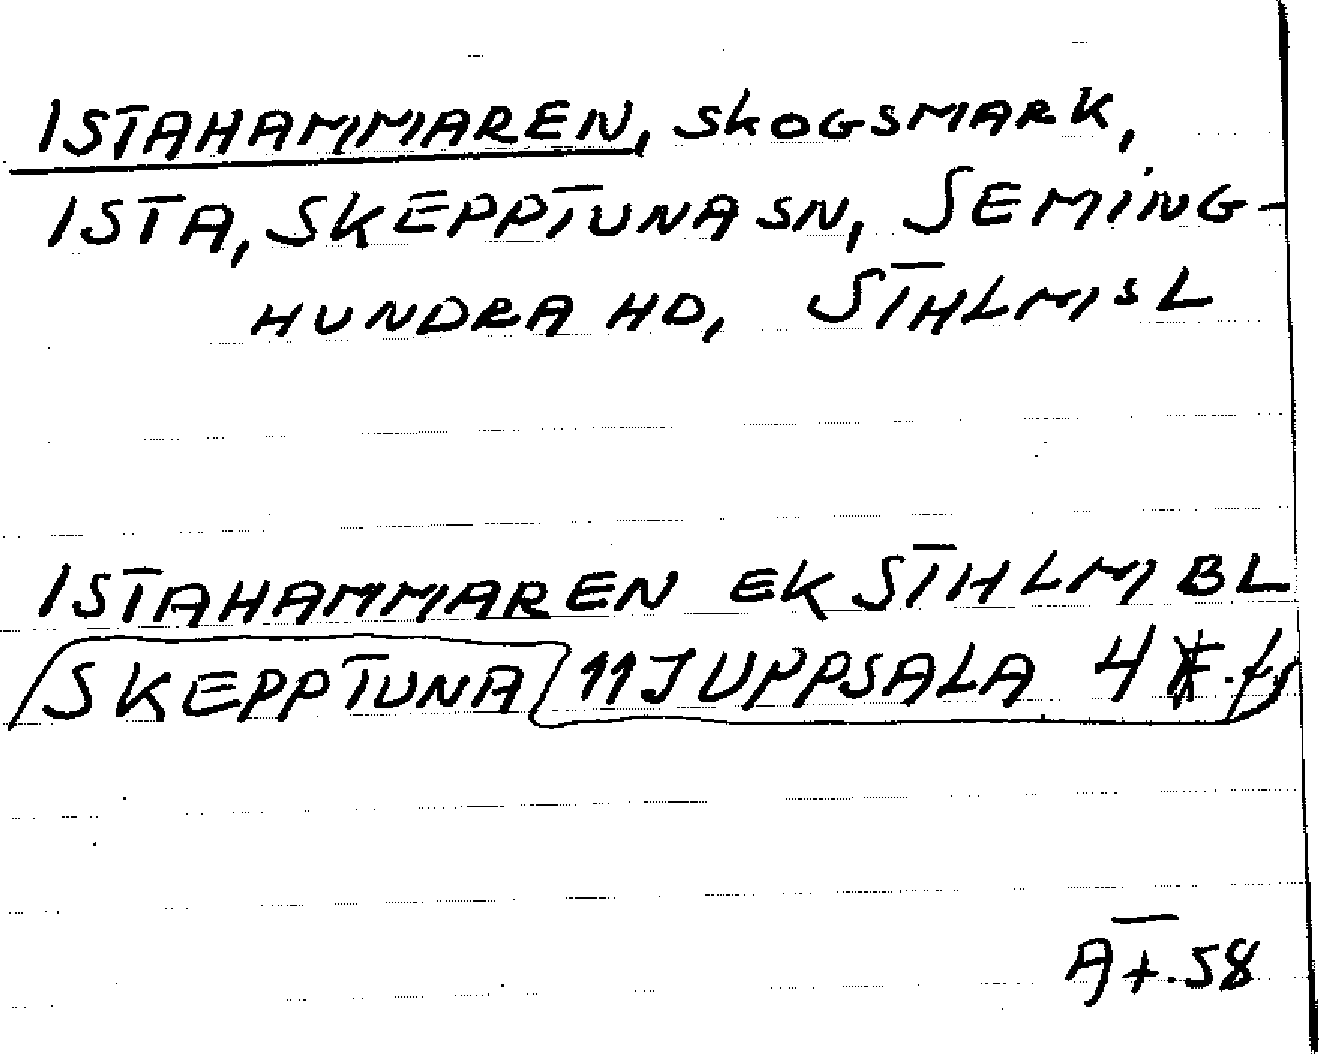 ISTAHAMMAREN, SKOGSMARK,
ISTA, SKEPPTUNA SN, SEMING-
HUNDRA HD, STHLMS L
ISTAHAMMAREN EK STHLM BL
SKEPPTUNA 11J UPPSALA 4
58